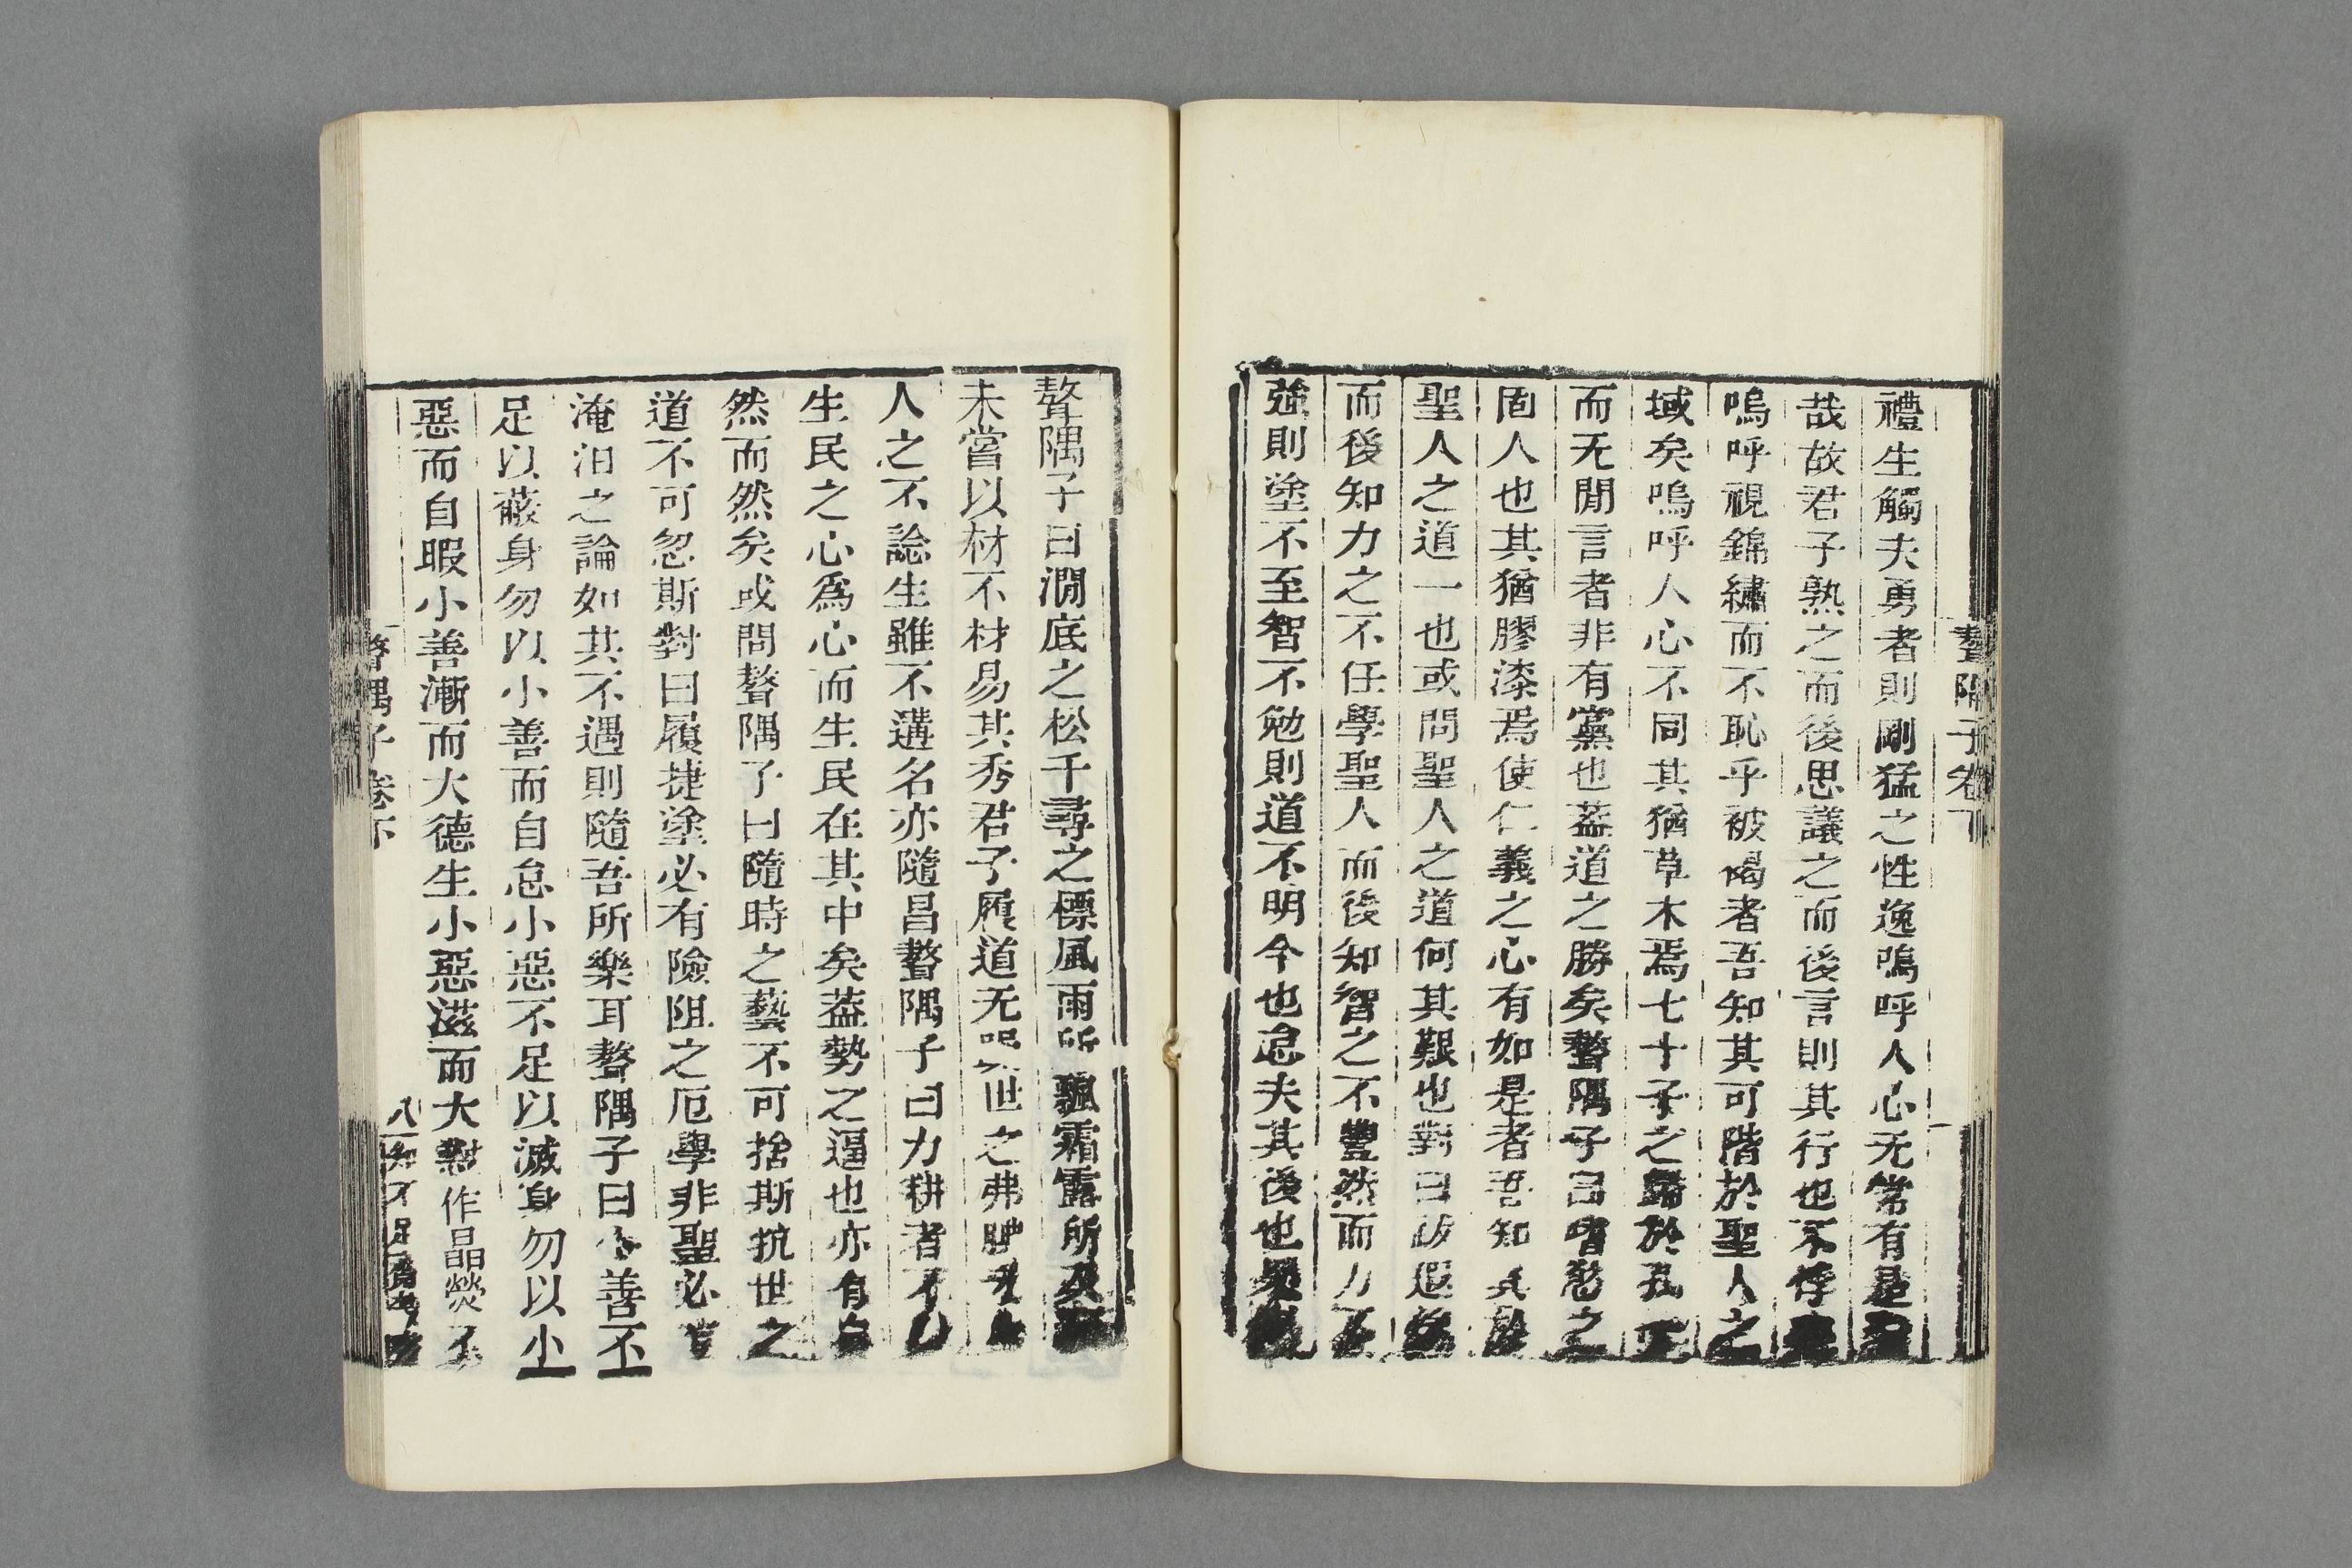 聱隅子卷下
禮生觸夫勇者則剛猛之性逸嗚呼人心无常有是
哉故君子熟之而後思議之而後言則其行也不悖
嗚呼視錦繡而不恥乎被褐者吾知其可階於聖人之
域矣嗚呼人心不同其猶草木焉七十子之歸於孔
而无閒言者非有黨也葢道之勝矣聱隅子曰嗜慾之
固人也其猶膠漆焉使仁義之心有如是者吾知其
聖人之道一也或問聖人之道何其艱也對曰
而後知力之不任學聖人而後知智之不豐然而力不
強則塗不至智不勉則道不明今也怠夫其後也
聱隅子曰澗底之松千尋之標風雨所飄霜露所
未嘗以材不材易其秀君子履道无世之弗
人之不諗生雖不遘名亦隨昌聱隅子曰力耕者不
生民之心爲心而生民在其中矣葢勢之逼也亦有
然而然矣或問聱隅子曰隨時之藝不可捨斯抗世之
道不可忽斯對曰履捷塗必有險阻之厄學非聖必
淹汩之論如其不遇則隨吾所樂耳聱隅子曰小善不
足以蔽身勿以小善而自怠小惡不足以滅身勿以小
惡而自暇小善漸而大德生小惡滋而大懟作晶熒不
聱隅子卷下
八